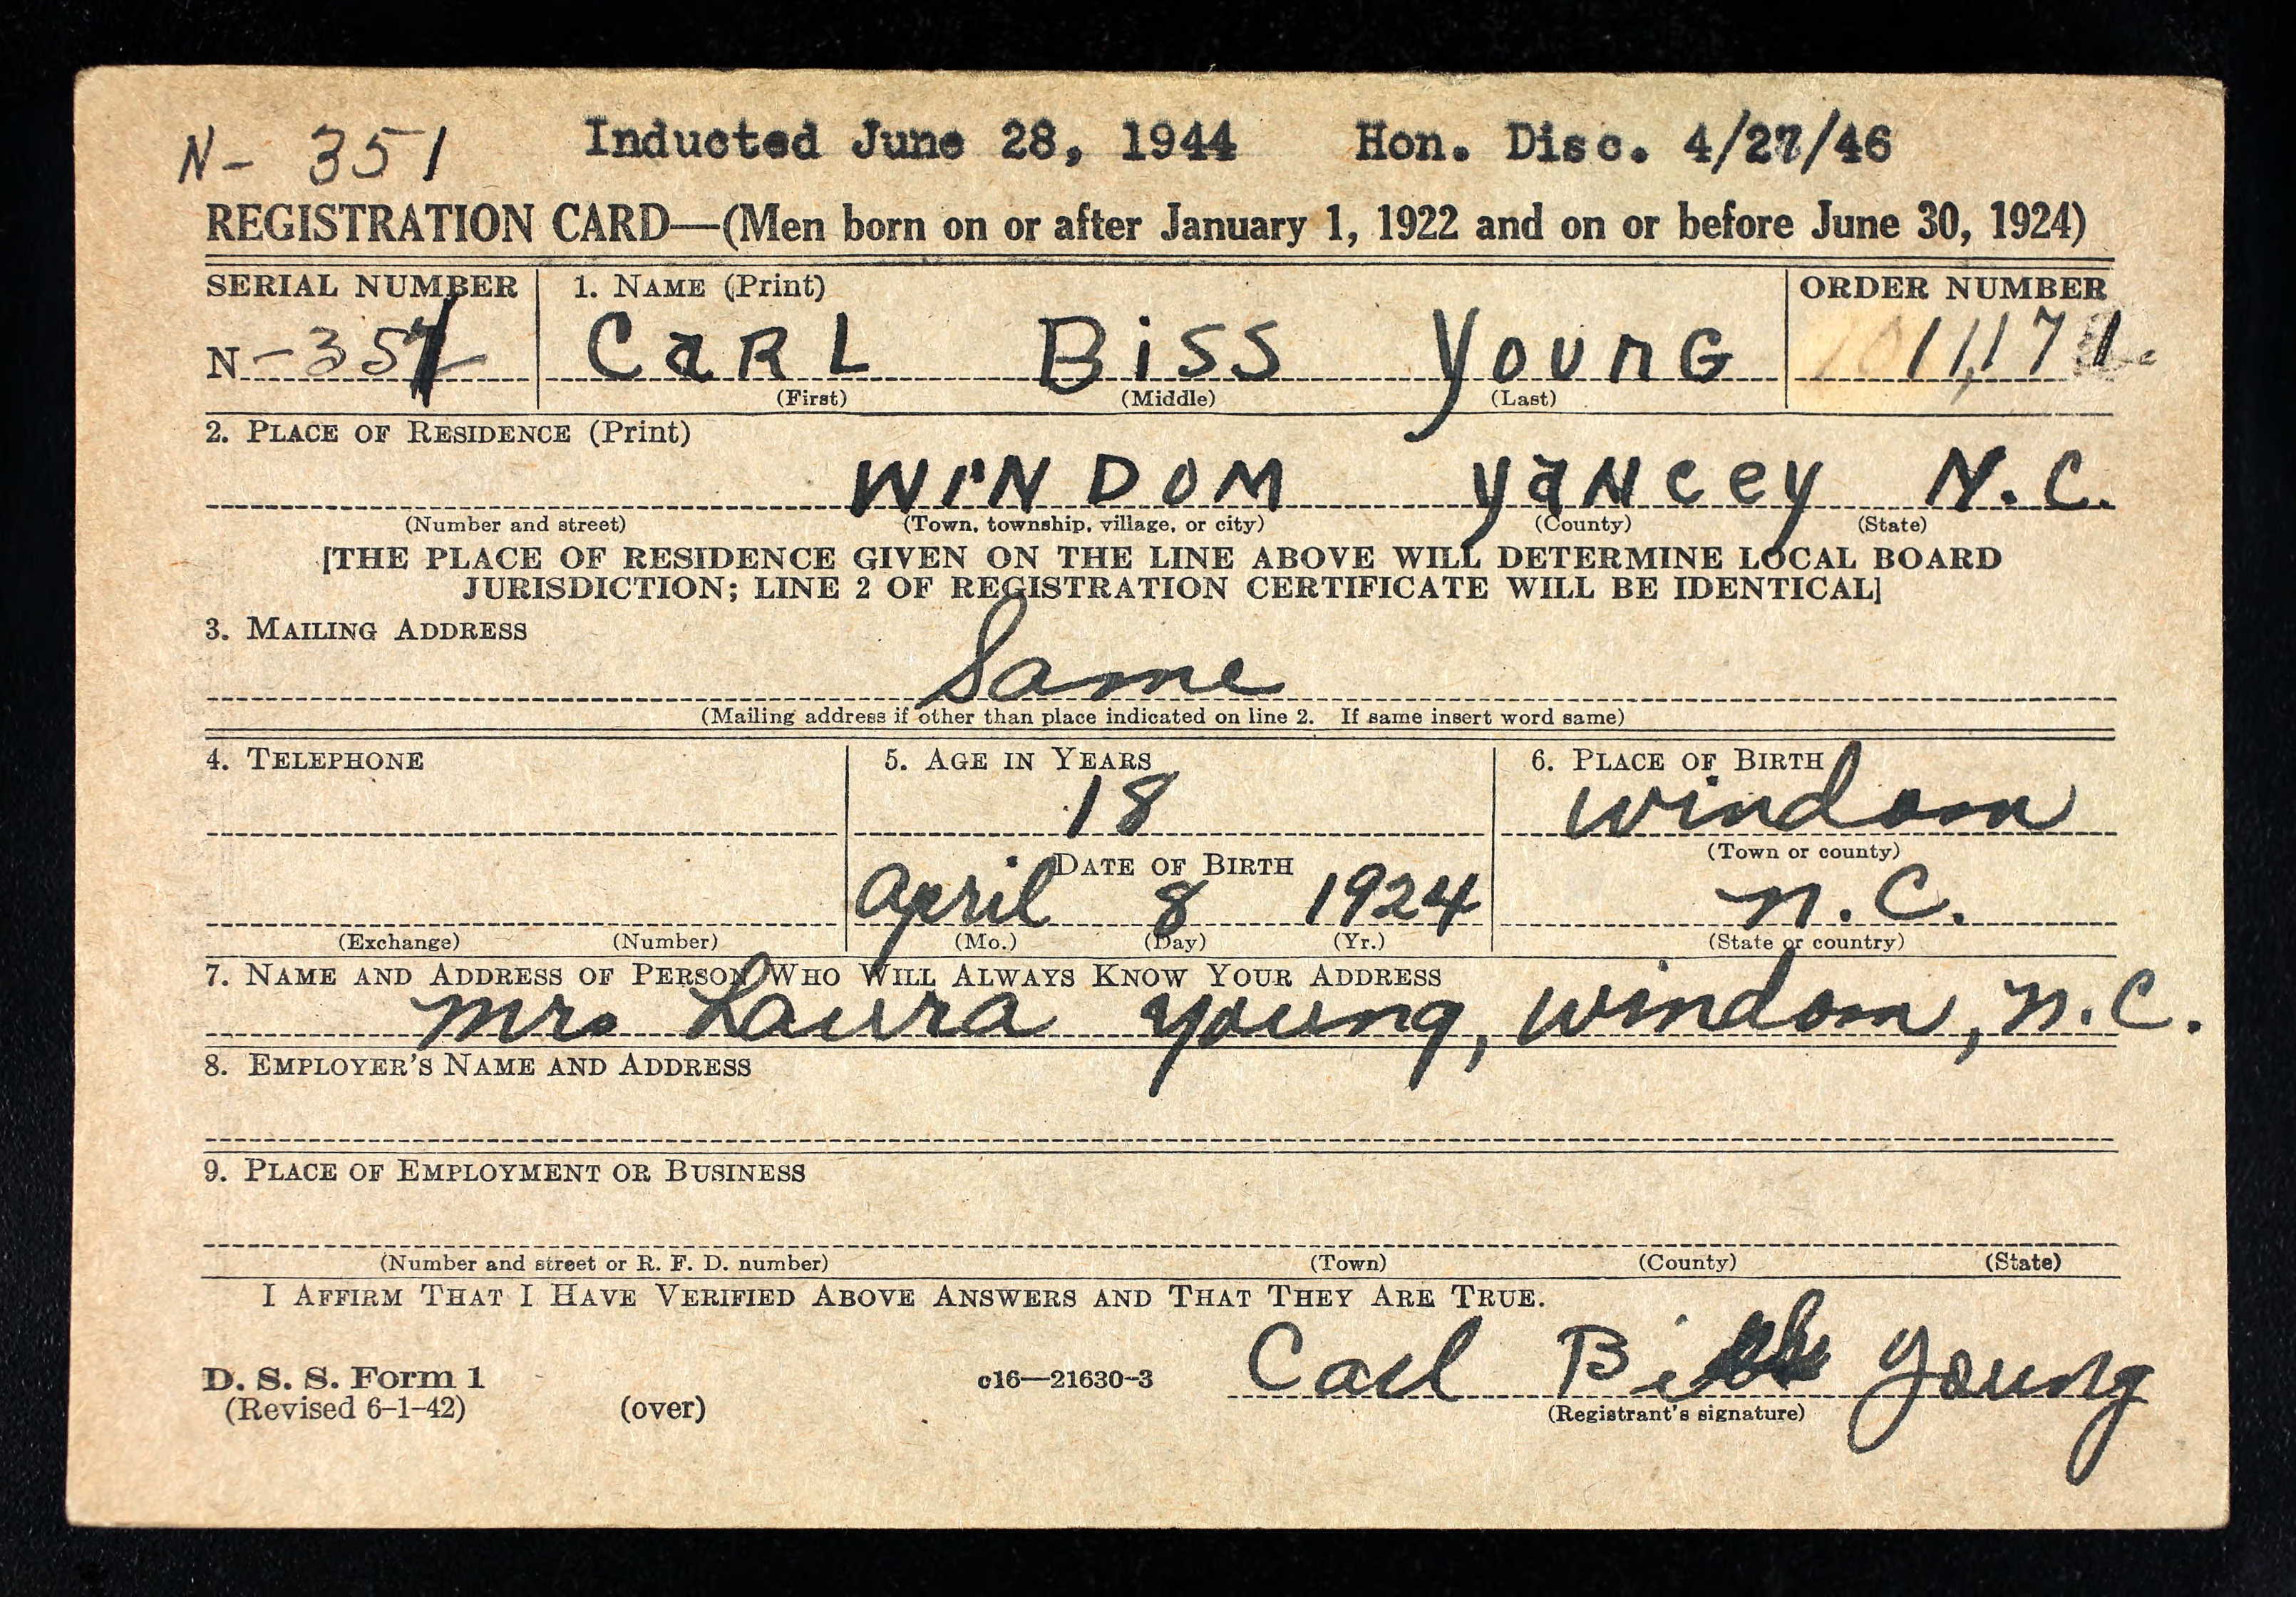 N- 351 Inducted June 28, 1944 Hon. Disc. 4/27/46
REGISTRATION CARD—(Men born on or after January 1, 1922 and on or before June 30, 1924)
SERIAL NUMBER 1. NAME (Print) ORDER NUMBER
N -351 CARL BiSS YounG
(First) (Middle) (Last)
2. PLACE OF RESIDENCE (Print)
WiNDOM yaNcey N.C.
(Number and street) (Town, township, village, or city) (County) (State)
[THE PLACE OF RESIDENCE GIVEN ON THE LINE ABOVE WILL DETERMINE LOCAL BOARD
JURISDICTION; LINE 2 OF REGISTRATION CERTIFICATE WILL BE IDENTICAL]
3. MAILING ADDRESS
Same
(Mailing address if other than place indicated on line 2. If same insert word same)
4. TELEPHONE 5. AGE IN YEARS 6. PLACE OF BIRTH
18 windom
DATE OF BIRTH (Town or county)
April 8 1924 N.C.
(Exchange) (Number) (Mo.) (Day) (Yr.) (State or country)
7. NAME AND ADDRESS OF PERSON WHO WILL ALWAYS KNOW YOUR ADDRESS
Mrs Laura young, windom, N.C.
8. EMPLOYER'S NAME AND ADDRESS
9. PLACE OF EMPLOYMENT OR BUSINESS
(Number and street or R. F. D. number) (Town) (County) (State)
I AFFIRM THAT I HAVE VERIFIED ABOVE ANSWERS AND THAT THEY ARE TRUE.
Carl Young
D. S. S. Form 1 c16—21630-3
(Revised 6-1-42) (over) (Registrant's signature)